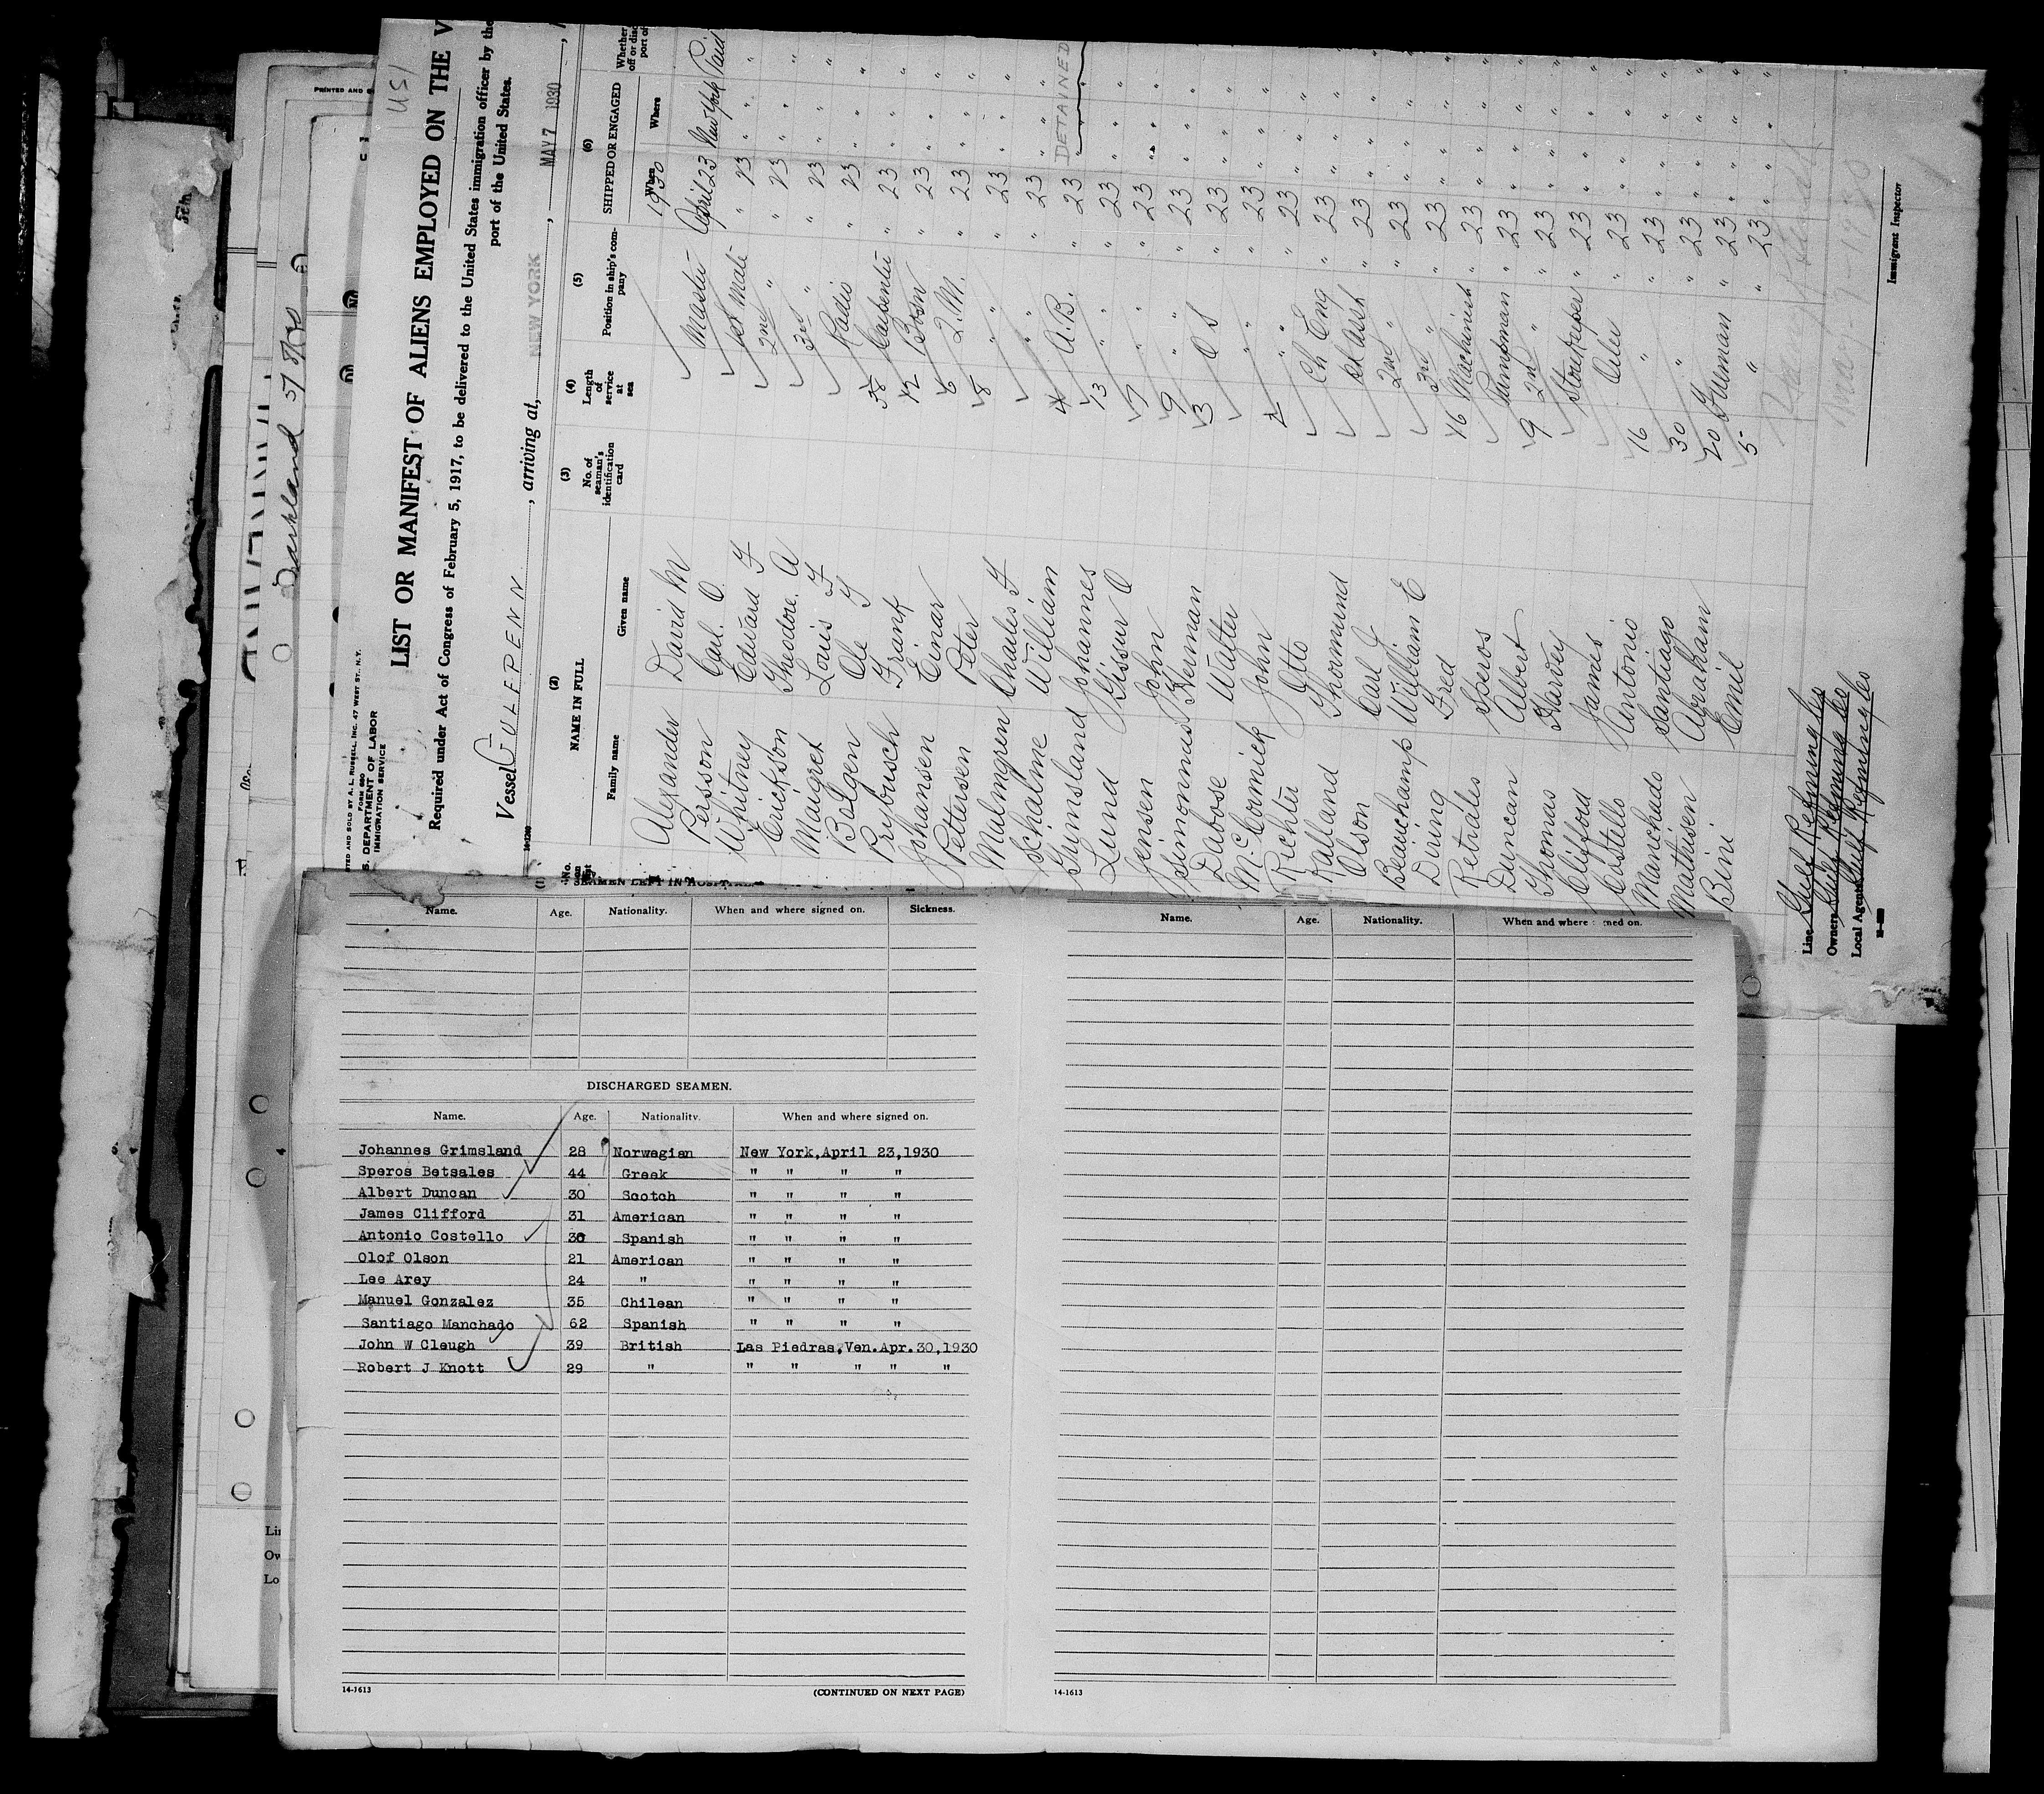 LIST OR MANIFEST OF ALIENS EMPLOYED ON THE V
Required under Act of Congress of February 5, 1917, to be delivered to the United States immigration officer by the
port of the United States.
Vessel GULFPENN, arriving at, NEW YORK, MAY 7 1930,
FORM 680
S. DEPARTMENT OF LABOR
IMMIGRATION SERVICE
(1) (2) (3) (4) (5) (6)
NAME IN FULL
Family name Given name
No. of seaman's identification card
Length of service at sea
Position in ship's company
SHIPPED OR ENGAGED
When Where
1930
Alexander David M Master April 23 New York Paid
Persson Carl O. 1st Mate " 23 " "
Whitney Edward F 2nd " " 23 " "
Erickson Theodore A 3rd " " 23 " "
Maigret Louis F Radio " 23 " "
Bolgen Ole T 38 Carpenter " 23 " "
Prybusch Frank 12 Bosn " 23 " "
Johansen Einar 6 Q.M. " 23 " "
Pettersen Peter 8 " " 23 " "
Malmgren Charles F " " 23 " "
Schalme William 4 A.B. " 23 " "
Grimsland Johannes 13 " " 23 " DETAINED
Lund Gissur O 7 " " 23 " "
Jensen John 9 " " 23 " "
Simonmus Herman 3 O S " 23 " "
Dabose Walter " " 23 " "
McCormick John " " 23 " "
Richter Otto Ch Eng " 23 " "
Kalland Thormund 1st Asst " 23 " "
Olson Carl J 2nd " " 23 " "
Beauchamp William E 3rd " " 23 " "
Diring Fred 16 Machinist " 23 " "
Retsales Speros Pumpman " 23 " "
Duncan Albert 9 2nd " " 23 " "
Thomas Harvey Storekeeper " 23 " "
Clifford James Oiler " 23 " "
Costello Antonio 16 " " 23 " "
Manchado Santiago 30 " " 23 " "
Mathisen Abraham 20 Fireman " 23 " "
Bini Emil 5 " " 23 " "
Line Gulf Refining Co
Owners Gulf Refining Co
Local Agents Gulf Refining Co
May 7-1930
Immigrant Inspector
Name. Age. Nationality. When and where signed on. Sickness.
DISCHARGED SEAMEN.
Name. Age. Nationality. When and where signed on.
Johannes Grimsland 28 Norwegian New York,April 23,1930
Speros Betsales 44 Greek " " " "
Albert Duncan 30 Scotch " " " "
James Clifford 31 American " " " "
Antonio Costello 30 Spanish " " " "
Olof Olson 21 American " " " "
Lee Arey 24 " " " " "
Manuel Gonzalez 35 Chilean " " " "
Santiago Manchado 62 Spanish " " " "
John W Cleugh 39 British Las Piedras,Ven.Apr.30,1930
Robert J Knott 29 " " " " " "
14-1613
(CONTINUED ON NEXT PAGE)
Name. Age. Nationality. When and where signed on.
14-1613